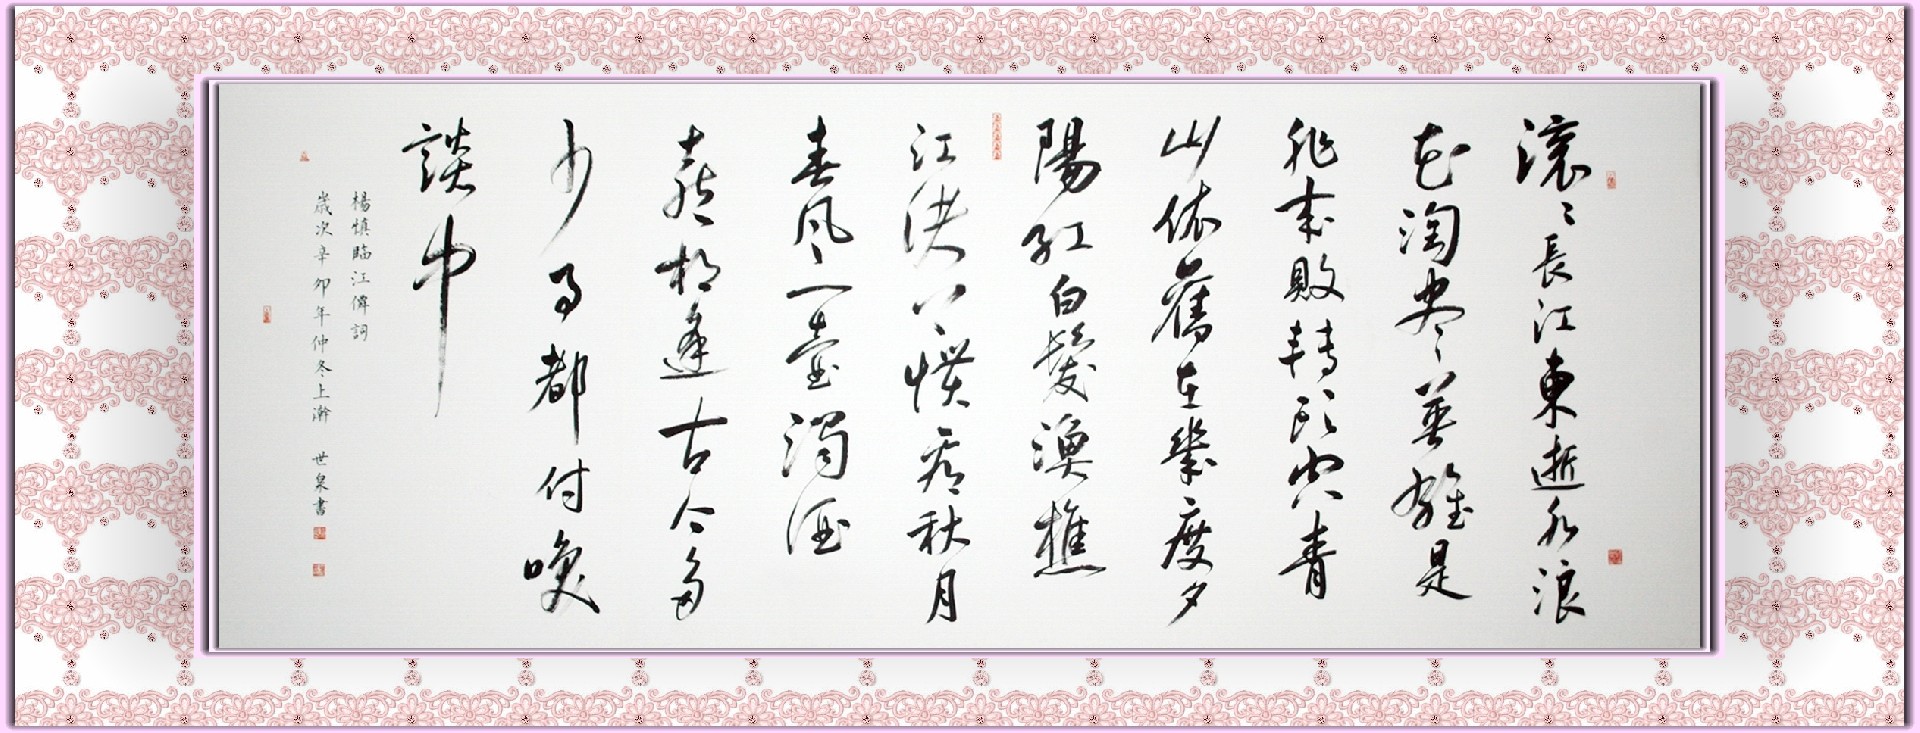 滾〻長江東逝水浪
花淘尽英雄是
非成敗轉頭空青
山依舊在幾度夕
陽紅白髮漁樵
江渚上慣看秋月
春風一壺濁酒
喜相逢古今多
少事都付咲
談中
楊慎臨江僊詞
歲次辛卯年仲冬上澣 世泉書